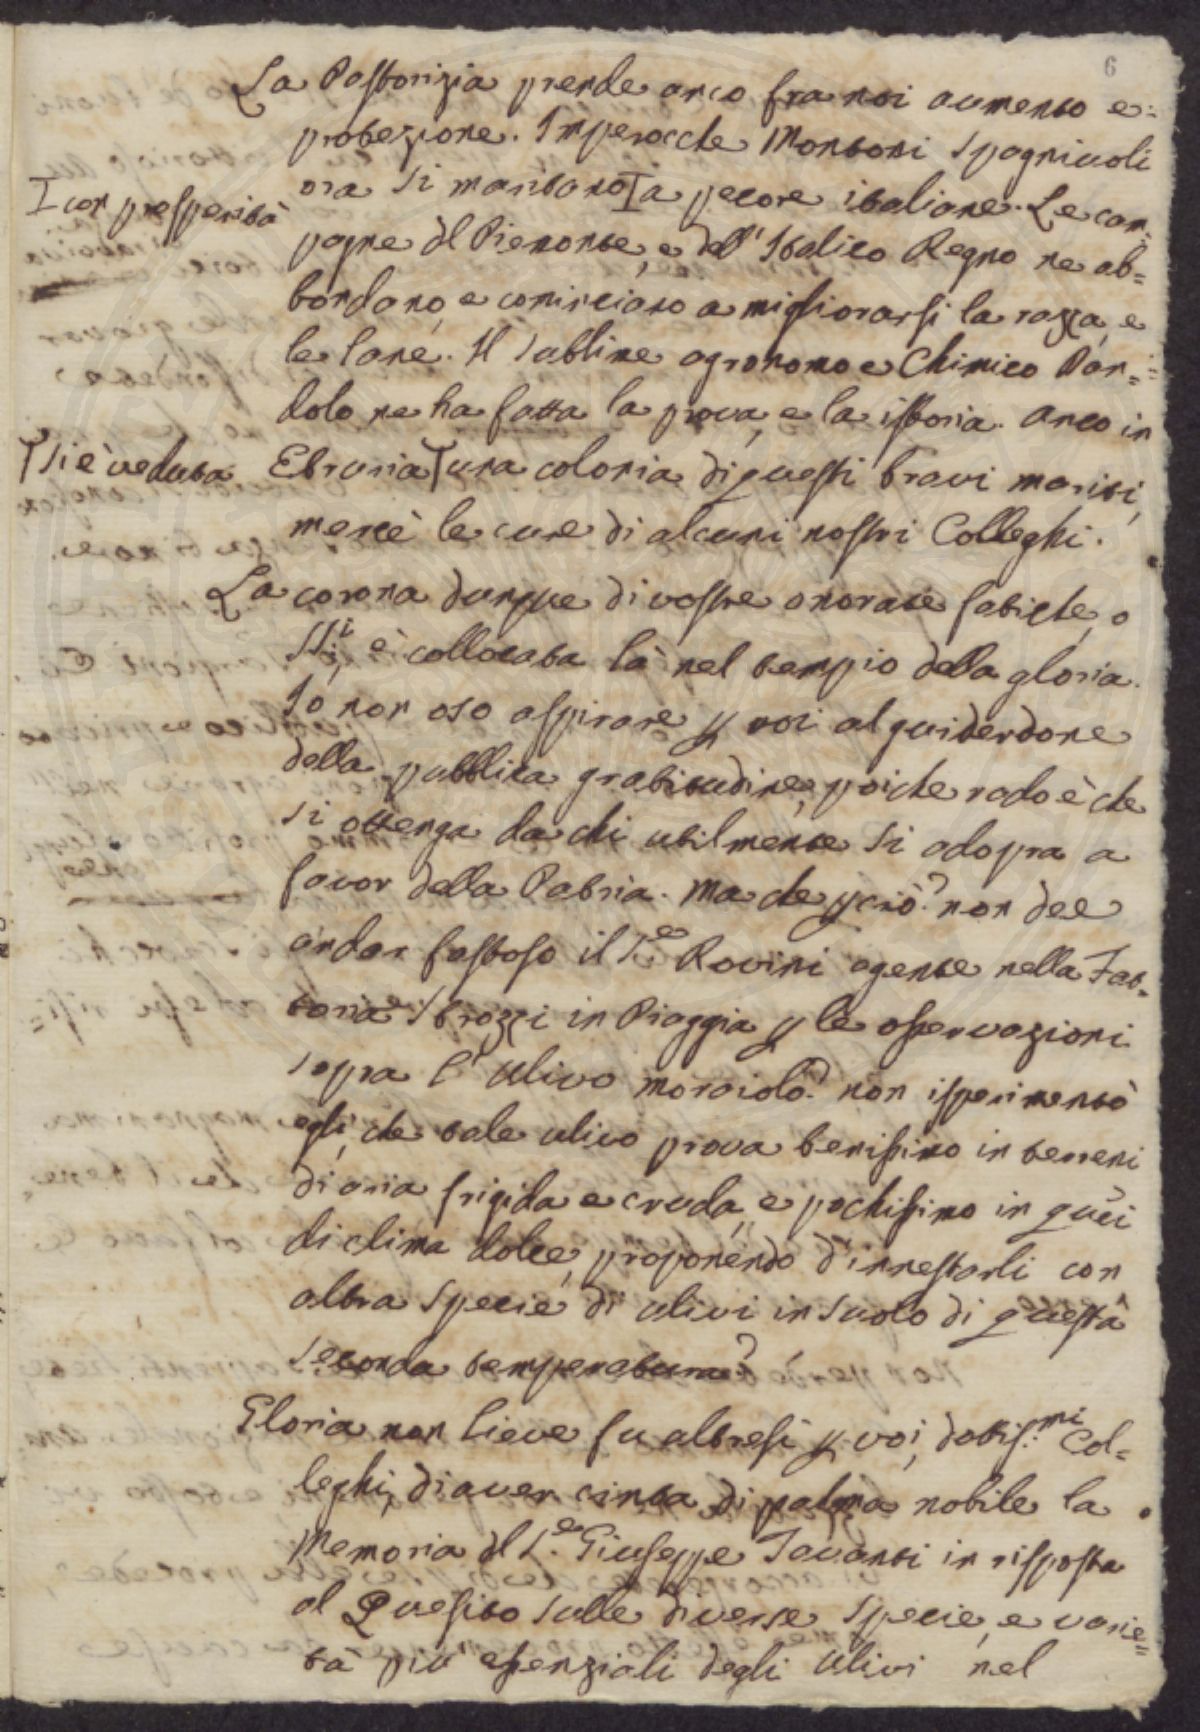 6
La Pastorizia prende anco fra noi aumento e
protezione. Imperocche Montoni Spagnuoli
ora si maritano a pecore italiane. Le cam-
I con prosperità
pagne del Piemonte, e dell'Italico Regno ne ab=
bondano, e cominciano a migliorarsi la razza, e
le lane. Il sublime agronomo e Chimico Dan=
dolo ne ha fatta la prova, e la istoria. Anco in
T si è veduta
Etruria T una colonia di questi bravi mariti,
mercè le cure di alcuni nostri Colleghi.
La corona dunque di vostre onorate fatiche, o
SS.i, è collocata là nel tempio della gloria.
Io non oso aspirare p voi al guiderdone
della pubblica gratitudine, poiche rado è che
si ottenga da chi utilmente si adopra a
favor della Patria. Ma che p ciò? non dee
andar fastoso il Sig.e Rovini agente nella Fat=
toria Strozzi in Piaggia p le osservazioni
sopra l'ulivo moraiolo? non isperimentò
egli, che tale ulivo prova benissimo in terreni
di aria frigida e cruda, e pochissimo in quei
di clima dolce, proponendo d'innestarli con
altra specie di ulivi in suolo di questa
seconda temperatura?
Gloria non lieve fu altresi p voi, dottis.mi Col=
leghi, di aver cinta di palma nobile la
Memoria del S.e Giuseppe Tavanti in risposta
al Quesito sulle diverse specie, e varie=
tà più essenziali degli ulivi nel